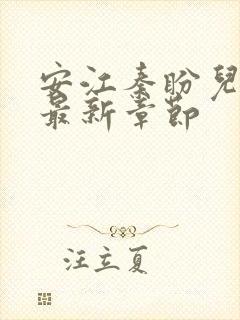 安江秦盼兒
最新章節
汪立夏